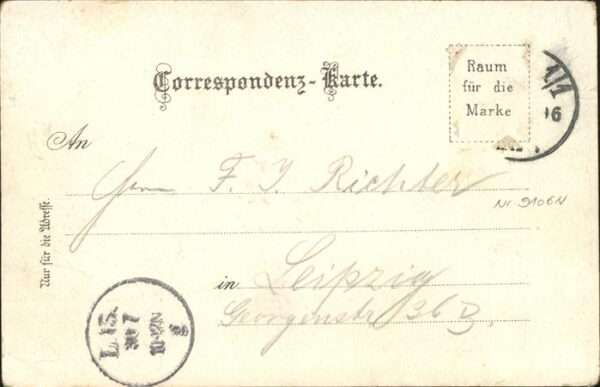 Correspondenz-Karte.
Raum
für die
Marke
1/1
06
An
Herrn F. J. Richter
Nr. 9106N
Nur für die Adresse.
in Leipzig
Georgenstr 36
L. 15.
30 7